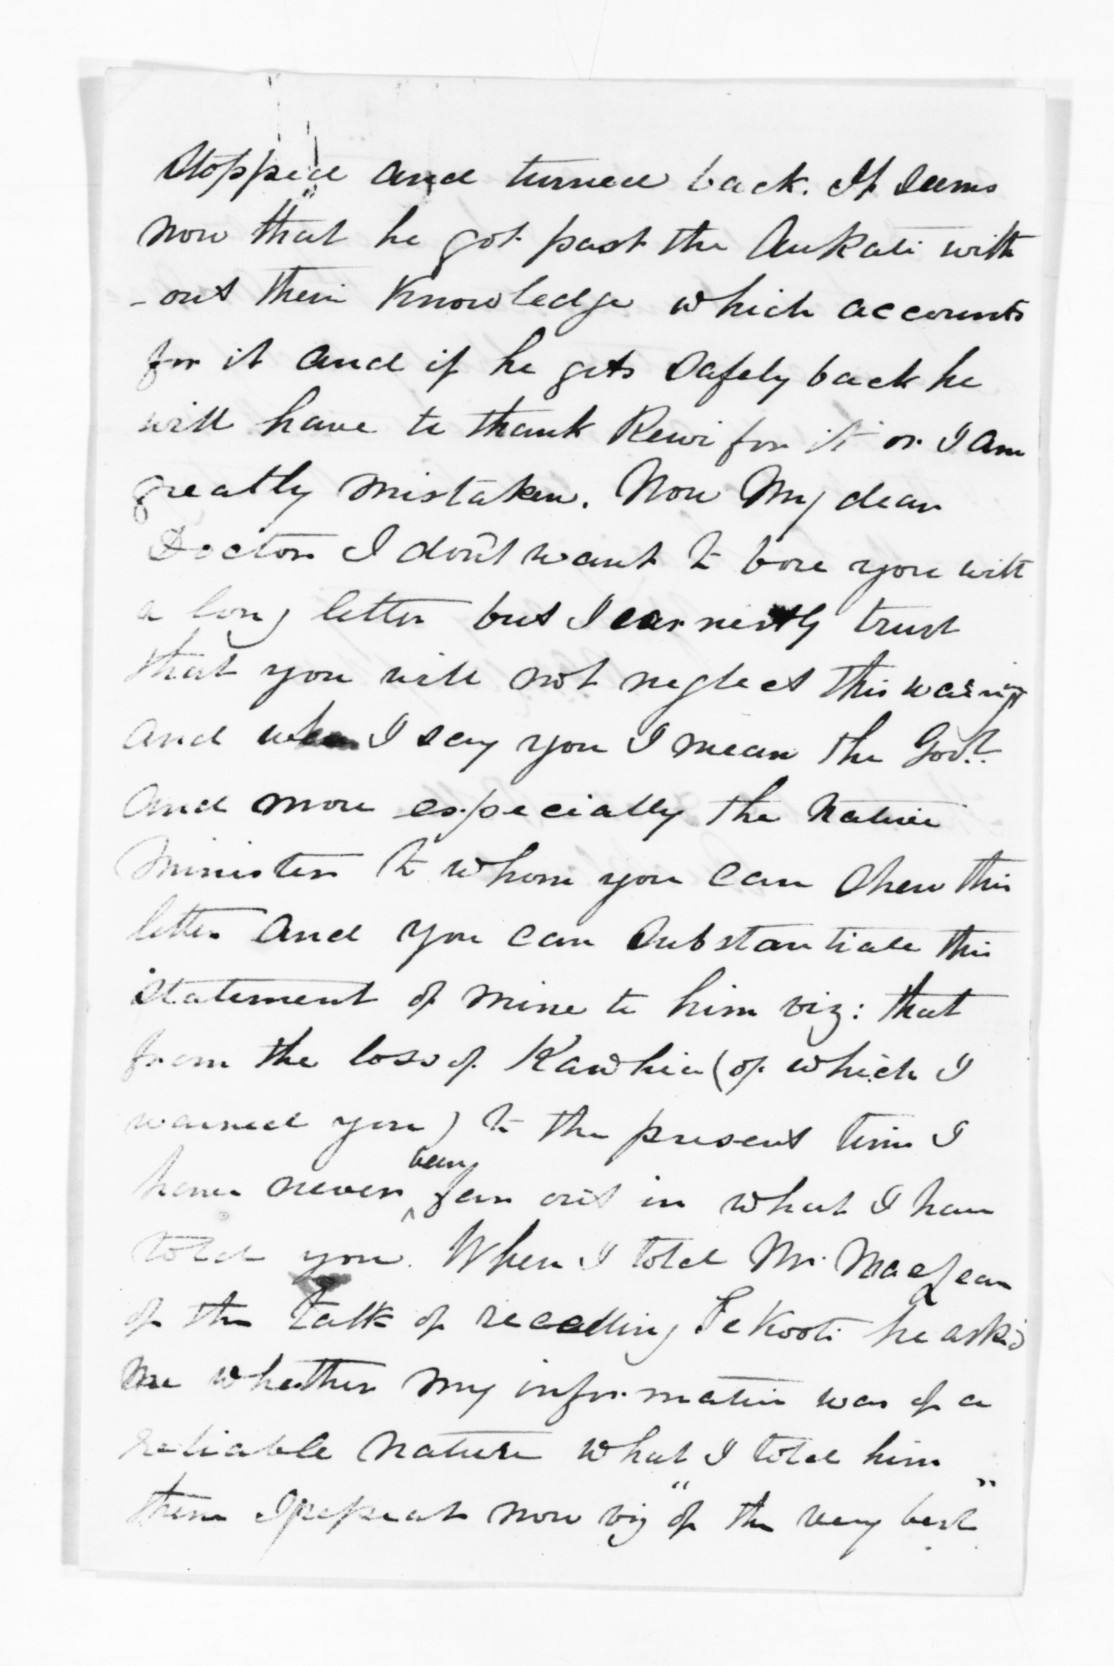 stopped and turned back. It seems
now that he got past the Aukati with
-out their knowledge which accounts
for it and if he gets safely back he
will have to thank Rewi for it or I am
greatly mistaken. Now My dear
Doctor I don't want to bore you with
a long letter but I earnestly trust
that you will not neglect this warning
and when I say you I mean the Govt.
and more especially the Native
Minister to whom you can shew this
letter and you can substantiate this
statement of mine to him viz: that
from the loss of Kawhia (of which I
warned you) to the present time I
have never been far out in what I have
told you. When I told Mr. MacLean
of the talk of recalling Te Kooti he ask'd
me whether my information was of a
reliable nature what I told him
then I repeat now viz "of the very best"